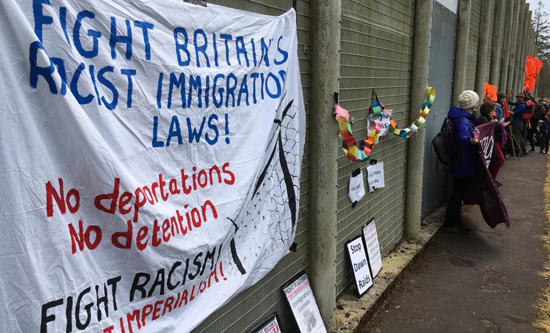 FIGHT BRITAIN'S
RACIST IMMIGRATION
LAWS!
No deportations
No detention
FIGHT RACISM!
FIGHT IMPERIALISM!
Stop
Dawn
Raids